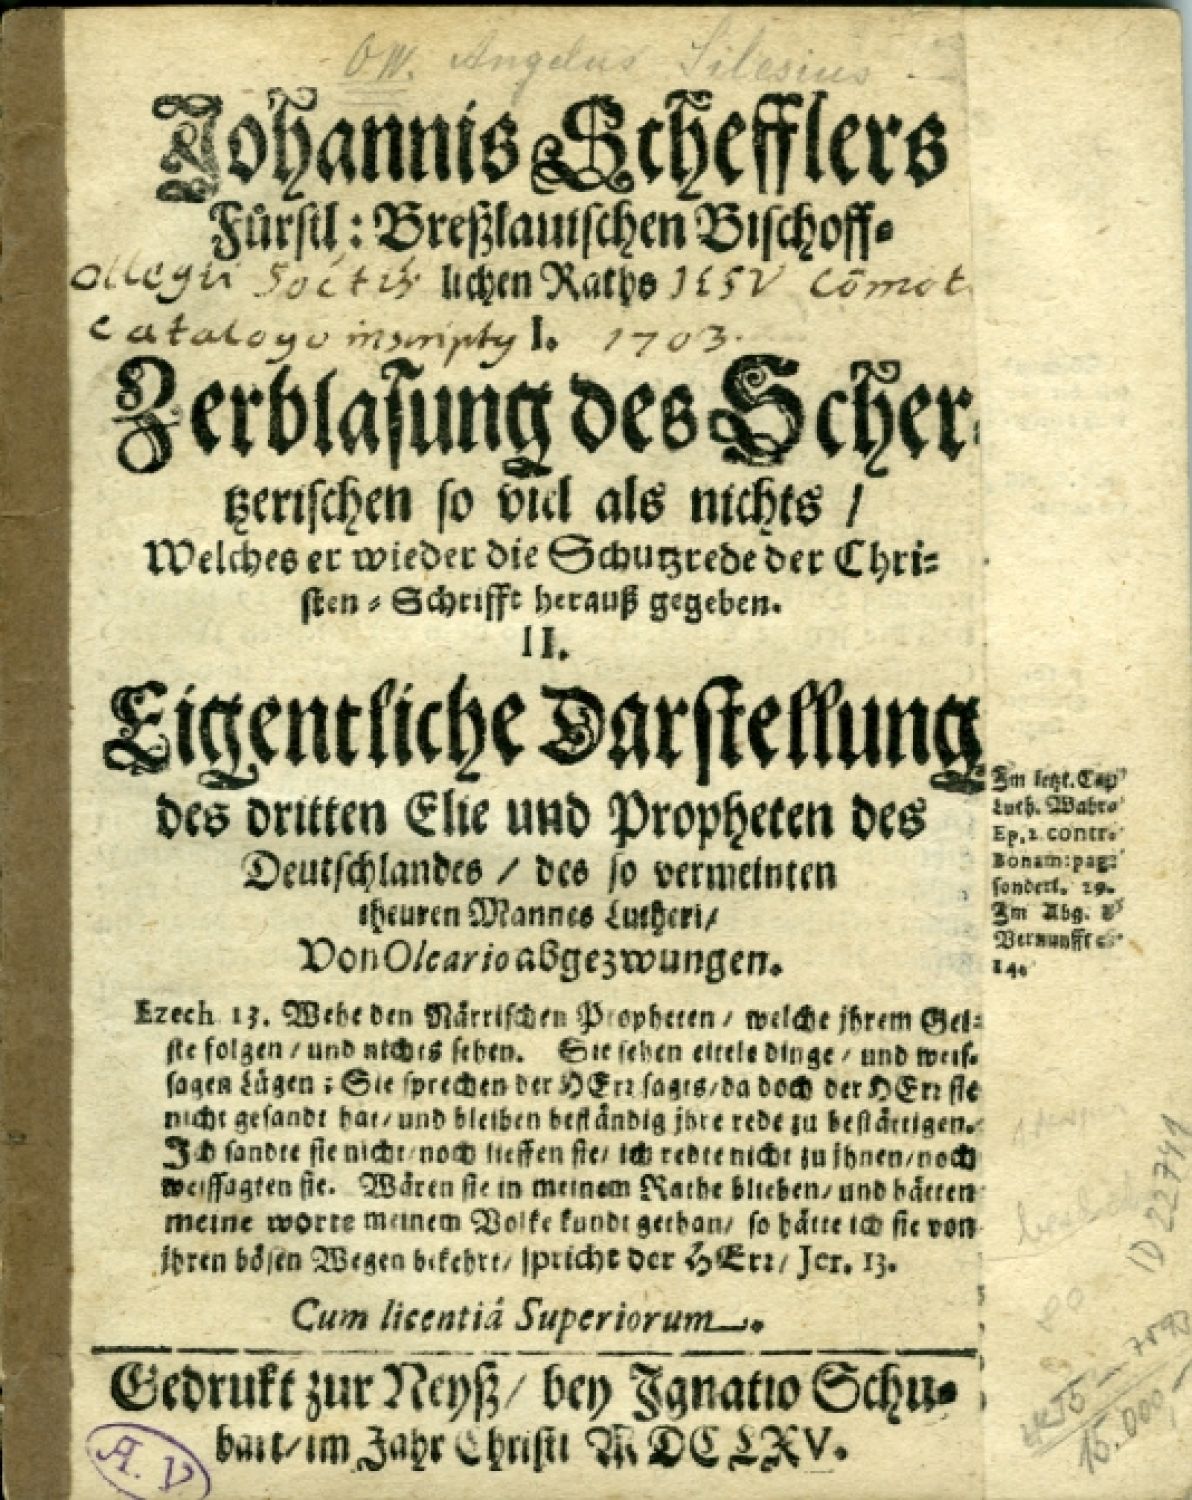 OW. Angelus Silesius
Johannis Schefflers
Fürstl: Breßlauischen Bischoff-
lichen Raths
ollegii Soctis JESV Comot
Catalogo inscripty 1703.
I.
Zerblasung des Scher-
tzerischen so viel als nichts /
Welches er wieder die Schutzrede der Chri-
sten-Schrifft herauß gegeben.
II.
Eigentliche Darstellung
des dritten Elie und Propheten des
Deutschlandes / des so vermeinten
theuren Mannes Lutheri /
Von Oleario abgezwungen.
Im letzt. Cap
Luth. Wahre
Ep. 2. contr.
Bonam: pag:
sonderl. 29.
Im Abg. d
Vernunfft
14.
Ezech 13. Wehe den Närrischen Propheten / welche jhrem Gei-
ste folgen / und nichts sehen. Sie sehen eitele dinge / und weis-
sagen Lügen: Sie sprechen der HErr sagts / da doch der HErr sie
nicht gesandt hat / und bleiben beständig jhre rede zu bestättigen.
Ich sandte sie nicht / noch lieffen sie / ich redte nicht zu jhnen / noch
weissagten sie. Wären sie in meinem Rathe blieben / und hätten
meine worte meinem Volke kundt gethan / so hätte ich sie von
jhren bösen Wegen bekehrt / spricht der HErr / Jer. 13.
Cum licentiâ Superiorum.
Gedrukt zur Neyß / bey Ignatio Schu-
bart / im Jahr Christi MDCLXV.
A. V
ID 22741
80
7593
15.000,-